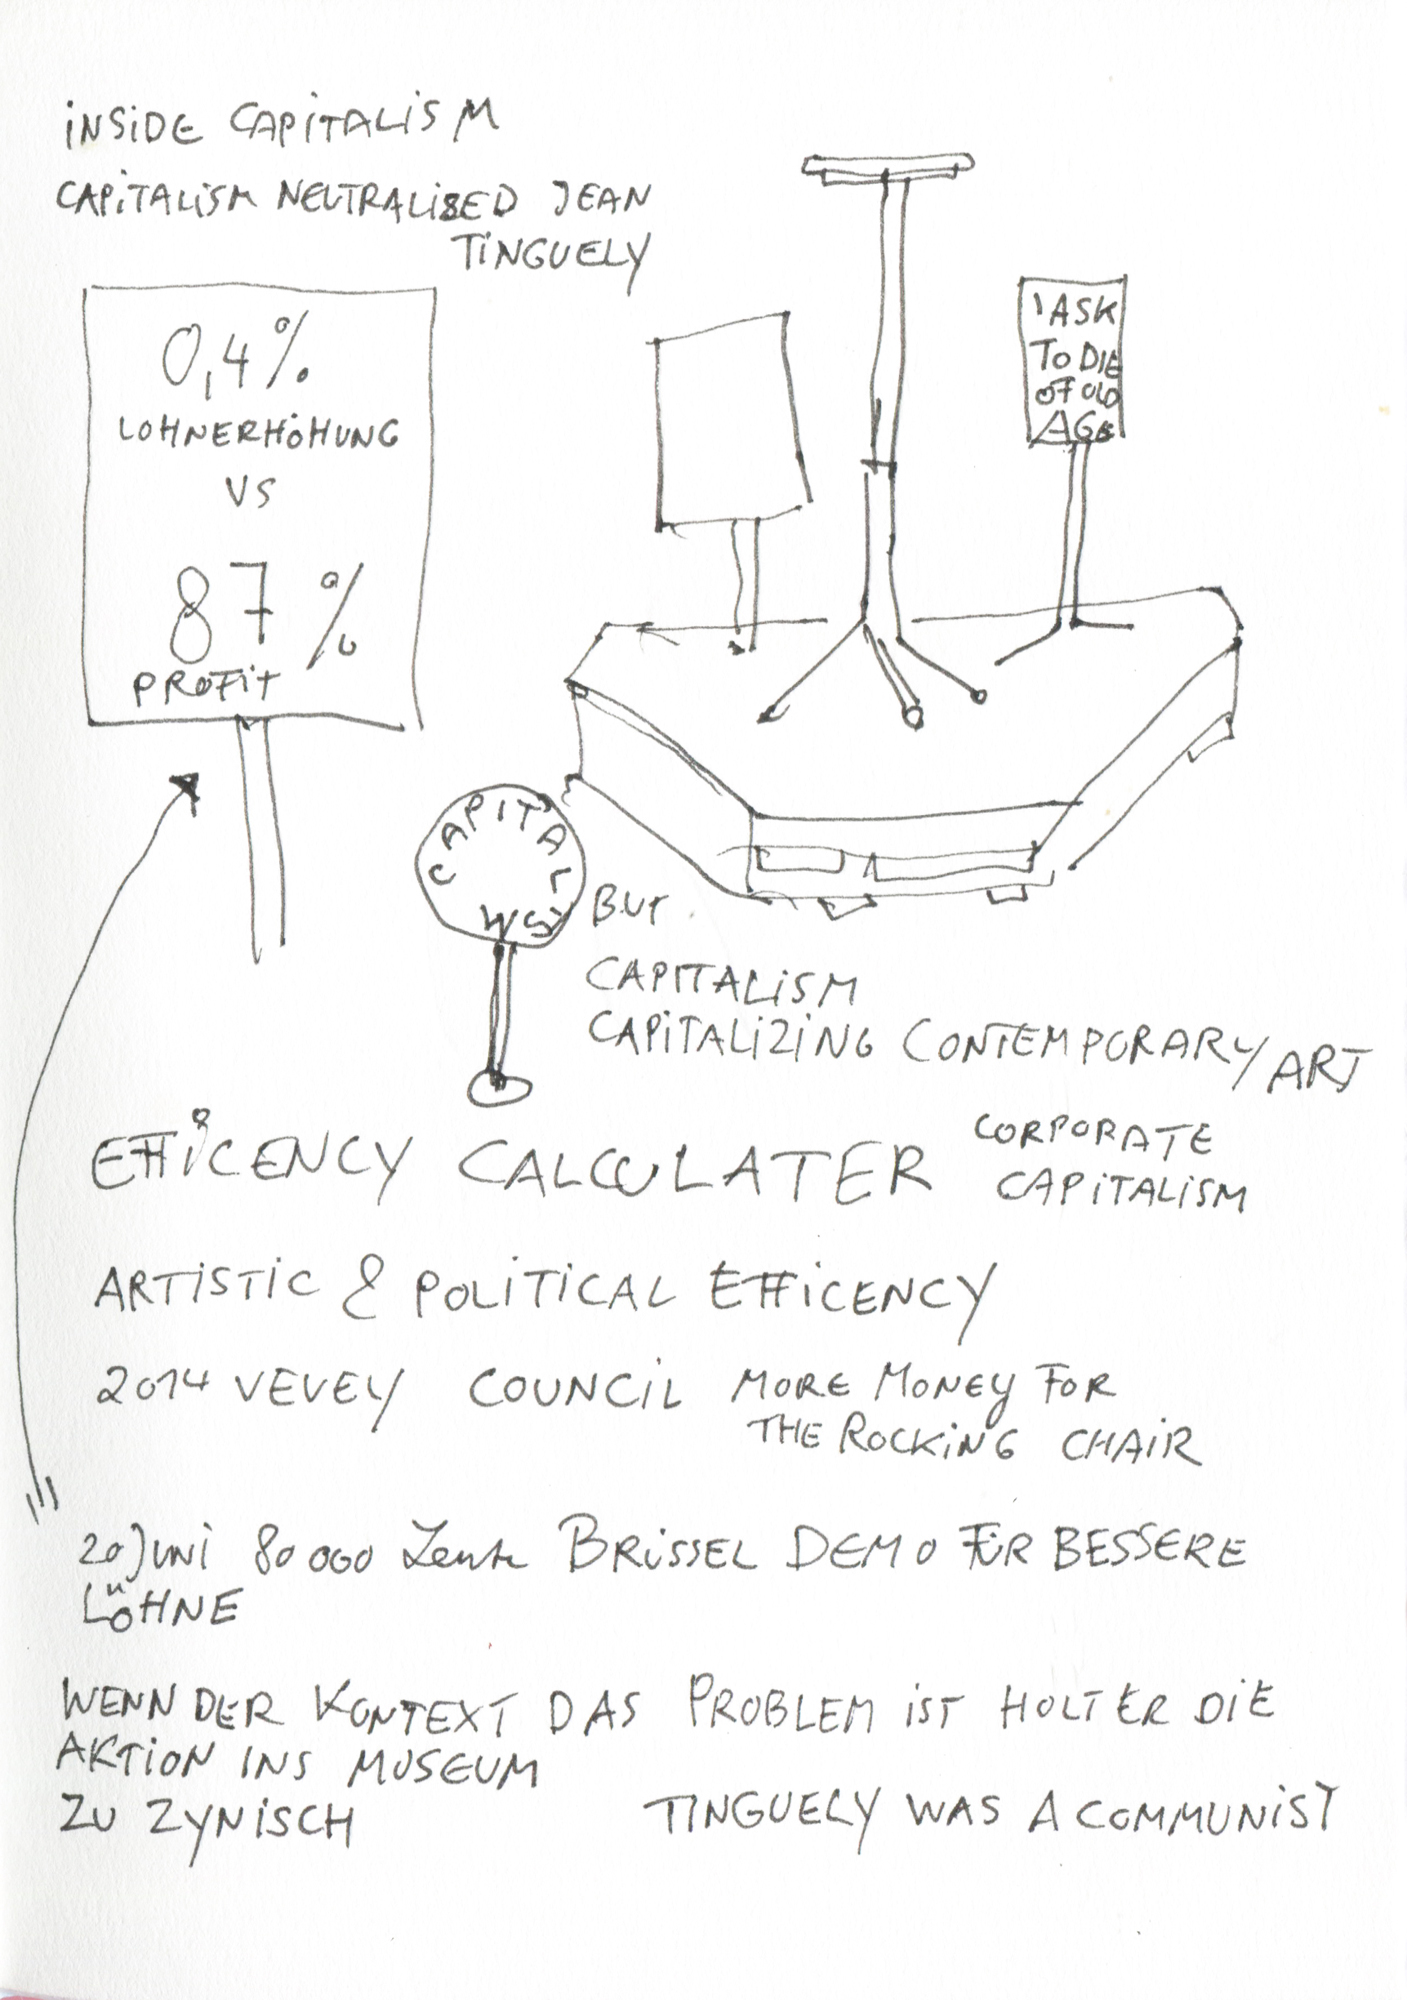 INSIDE CAPITALISM
CAPITALISM NEUTRALISED JEAN
TINGUELY
0,4%
LOHNERHÖHUNG
VS
87 %
PROFIT
I ASK
TO DIE
OF OLD
AGE
CAPITALISM
BUT
CAPITALISM
CAPITALIZING CONTEMPORARY ART
EFFICENCY CALCULATER
CORPORATE
CAPITALISM
ARTISTIC & POLITICAL EFFICENCY
2014 VEVEY COUNCIL MORE MONEY FOR
THE ROCKING CHAIR
20 JUNI 80 000 Leute BRÜSSEL DEMO FÜR BESSERE
LÖHNE
WENN DER KONTEXT DAS PROBLEM IST HOLT ER DIE
AKTION INS MUSEUM
ZU ZYNISCH
TINGUELY WAS A COMMUNIST